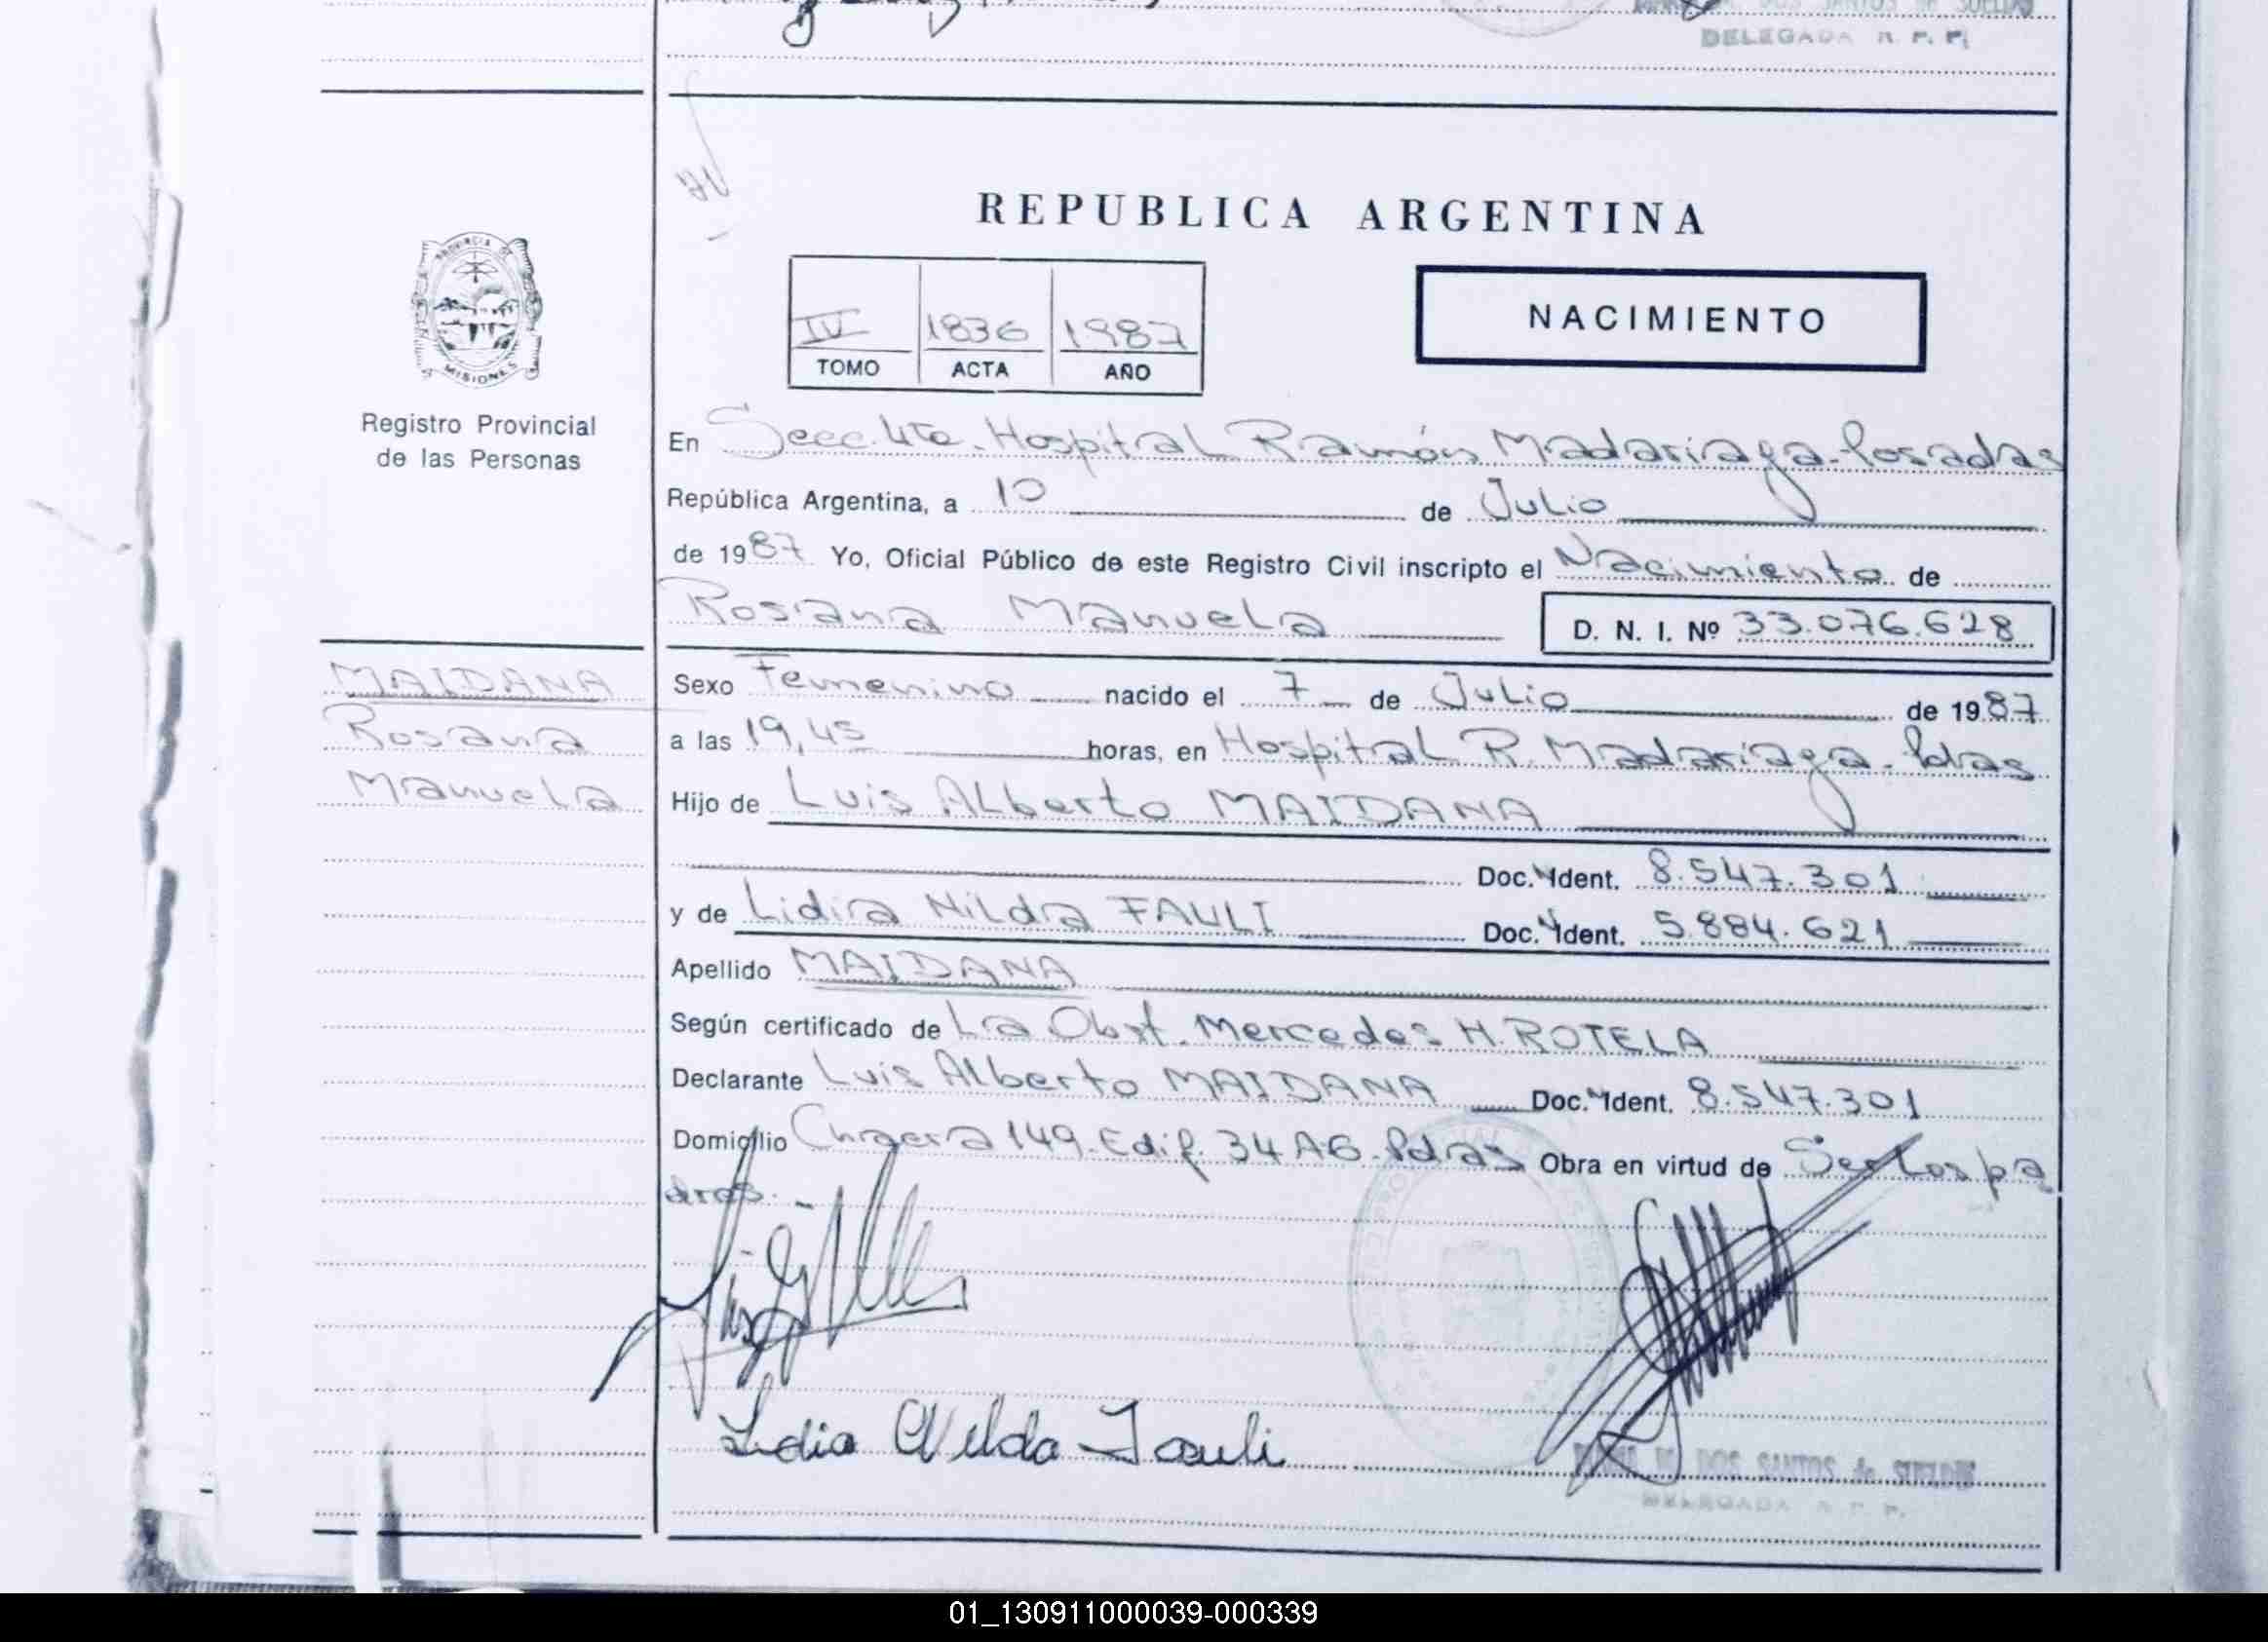 DOS SANTOS de SUELDO
DELEGADA R. P. P.
PROVINCIA DE
MISIONES
Registro Provincial
de las Personas
REPUBLICA ARGENTINA
IV 1836 1987
TOMO ACTA AÑO
NACIMIENTO
En Secc. 4ta. Hospital Ramón Madariaga - Posadas
República Argentina, a 10 de Julio
de 1987 Yo, Oficial Público de este Registro Civil inscripto el Nacimiento de
Rosana Manuela D. N. I. Nº 33.076.628
MAIDANA
Rosana
Manuela
Sexo Femenino nacido el 7 de Julio de 1987
a las 19,45 horas, en Hospital R. Madariaga - Pdas
Hijo de Luis Alberto MAIDANA
Doc. Ident. 8.547.301
y de Lidia Nilda FAULI Doc. Ident. 5.884.621
Apellido MAIDANA
Según certificado de La Obst. Mercedes H. ROTELA
Declarante Luis Alberto MAIDANA Doc. Ident. 8.547.301
Domicilio Chacra 149. Edif. 34 A6 - Pdas Obra en virtud de Ser los pa
dres. -
Lidia Nilda Fauli
DOS SANTOS de SUELDO
DELEGADA R. P. P.
01_130911000039-000339